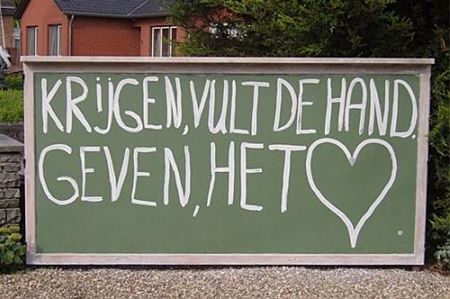 KRIJGEN, VULT DE HAND.
GEVEN, HET ♡